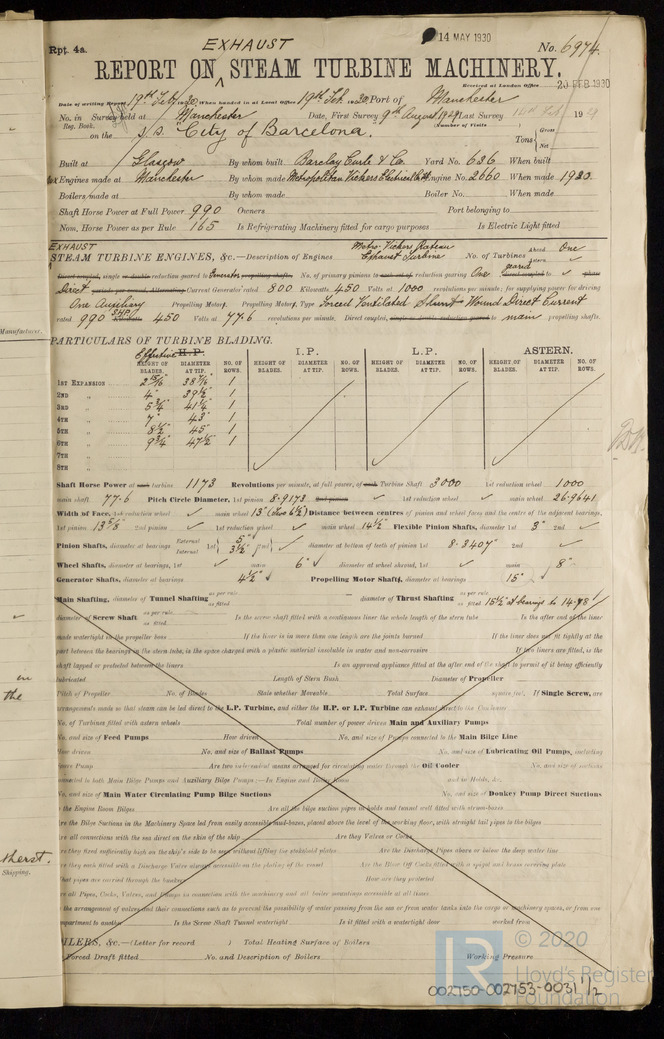 14 MAY 1930
Rpt. 4a. EXHAUST No. 6974
REPORT ON STEAM TURBINE MACHINERY.
Received at London Office 20 FEB 1930
Date of writing Report 19th Feb. 1930 When handed in at Local Office 19th Feb. 1930 Port of Manchester
No. in Survey held at Manchester Date, First Survey 9th August 1929 Last Survey 19
Reg. Book. (Number of Visits
on the S/S "City of Barcelona. Tons Gross Net
Built at Glasgow By whom built Barclay Curle & Co. Yard No. 636 When built
Engines made at Manchester By whom made Metropolitan Vickers Electrical Co Ltd Engine No. 2660 When made 1930.
Boilers made at By whom made Boiler No. When made
Shaft Horse Power at Full Power 990 Owners Port belonging to
Nom. Horse Power as per Rule 165 Is Refrigerating Machinery fitted for cargo purposes Is Electric Light fitted
EXHAUST
STEAM TURBINE ENGINES, &c.—Description of Engines Metro-Vickers Rateau Exhaust Turbine No. of Turbines Ahead One Astern ✓
Direct coupled, single or double reduction geared to Generator propelling shafts. No. of primary pinions to each set of reduction gearing One geared
Direct Current Generator rated 800 Kilowatts 450 Volts at 1000 revolutions per minute; for supplying power for driving
One Auxiliary Propelling Motor, Type Forced Ventilated Shunt Wound Direct Current
rated 990 SHP 450 Volts at 77.6 revolutions per minute. Direct coupled, single or double reduction geared to main propelling shafts.
PARTICULARS OF TURBINE BLADING.
Effective H.P. I.P. L.P. ASTERN.
HEIGHT OF BLADES. DIAMETER AT TIP. NO. OF ROWS. HEIGHT OF BLADES. DIAMETER AT TIP. NO. OF ROWS. HEIGHT OF BLADES. DIAMETER AT TIP. NO. OF ROWS. HEIGHT OF BLADES. DIAMETER AT TIP. NO. OF ROWS.
1ST EXPANSION 2 15/16 38 7/16" 1
2ND " 4" 39 1/2" 1
3RD " 5 3/4" 41 1/4" 1
4TH " 7" 43" 1
5TH " 8 1/2" 45" 1
6TH " 9 3/4" 47 1/2" 1
7TH "
8TH "
Shaft Horse Power at each turbine 1173 Revolutions per minute, at full power, of each Turbine Shaft 3000 1st reduction wheel 1000
main shaft 77.6 Pitch Circle Diameter, 1st pinion 8.9173 1st reduction wheel ✓ main wheel 26.9641
Width of Face, 1st reduction wheel ✓ main wheel 13" (Two 6 1/2) Distance between centres of pinion and wheel faces and the centre of the adjacent bearings,
1st pinion 13 5/8" 2nd pinion ✓ 1st reduction wheel ✓ main wheel 14 1/2" Flexible Pinion Shafts, diameter 1st 3" 2nd ✓
Pinion Shafts, diameter at bearings External Internal 1st 5" 3 1/2" 2nd ✓ diameter at bottom of teeth of pinion 1st 8.3407" 2nd ✓
Wheel Shafts, diameter at bearings, 1st ✓ main 6" diameter at wheel shroud, 1st ✓ main 8"
Generator Shafts, diameter at bearings 4 1/2" Propelling Motor Shafts, diameter at bearings 15"
Main Shafting, diameter of Tunnel Shafting as per rule as fitted diameter of Thrust Shafting as per rule as fitted 15 1/2" at bearings to 14.78"
diameter of Screw Shaft as per rule as fitted Is the screw shaft fitted with a continuous liner the whole length of the stern tube Is the after end of the liner
made watertight in the propeller boss If the liner is in more than one length are the joints burned If the liner does not fit tightly at the
part between the bearings in the stern tube, is the space charged with a plastic material insoluble in water and non-corrosive If two liners are fitted, is the
shaft lapped or protected between the liners Is an approved appliance fitted at the after end of the shaft to permit of it being efficiently
lubricated Length of Stern Bush Diameter of Propeller
Pitch of Propeller No. of Blades State whether Moveable Total Surface square feet. If Single Screw, are
arrangements made so that steam can be led direct to the L.P. Turbine, and either the H.P. or I.P. Turbine can exhaust direct to the Condenser
No. of Turbines fitted with astern wheels Total number of power driven Main and Auxiliary Pumps
No. and size of Feed Pumps How driven No. and size of Pumps connected to the Main Bilge Line
How driven No. and size of Ballast Pumps No. and size of Lubricating Oil Pumps, including
Spare Pump Are two independent means arranged for circulating water through the Oil Cooler No. and size of suctions
connected to both Main Bilge Pumps and Auxiliary Bilge Pumps:—In Engine and Boiler Room and in Holds, &c.
No. and size of Main Water Circulating Pump Bilge Suctions No. and size of Donkey Pump Direct Suctions
the Engine Room Bilges Are all the bilge suction pipes in holds and tunnel well fitted with strum-boxes
Are the Bilge Suctions in the Machinery Space led from easily accessible mud-boxes, placed above the level of the working floor, with straight tail pipes to the bilges
Are all connections with the sea direct on the skin of the ship Are they Valves or Cocks
Are they fixed sufficiently high on the ship's side to be seen without lifting the stokehold plates Are the Discharge Pipes above or below the deep water line
Are they each fitted with a Discharge Valve always accessible on the plating of the vessel Are the Blow Off Cocks fitted with a spigot and brass covering plate
What pipes are carried through the bunkers How are they protected
Are all Pipes, Cocks, Valves, and Pumps in connection with the machinery and all boiler mountings accessible at all times
the arrangement of valves and their connections such as to prevent the possibility of water passing from the sea or from water tanks into the cargo or machinery spaces, or from one
compartment to another Is the Screw Shaft Tunnel watertight Is it fitted with a watertight door worked from
BOILERS, &c.—(Letter for record ) Total Heating Surface of Boilers
Forced Draft fitted No. and Description of Boilers Working Pressure
LR © 2020
Lloyd's Register
Foundation
002750-002753-0031 1/2
Manufacturer.
in
the
Shipping.